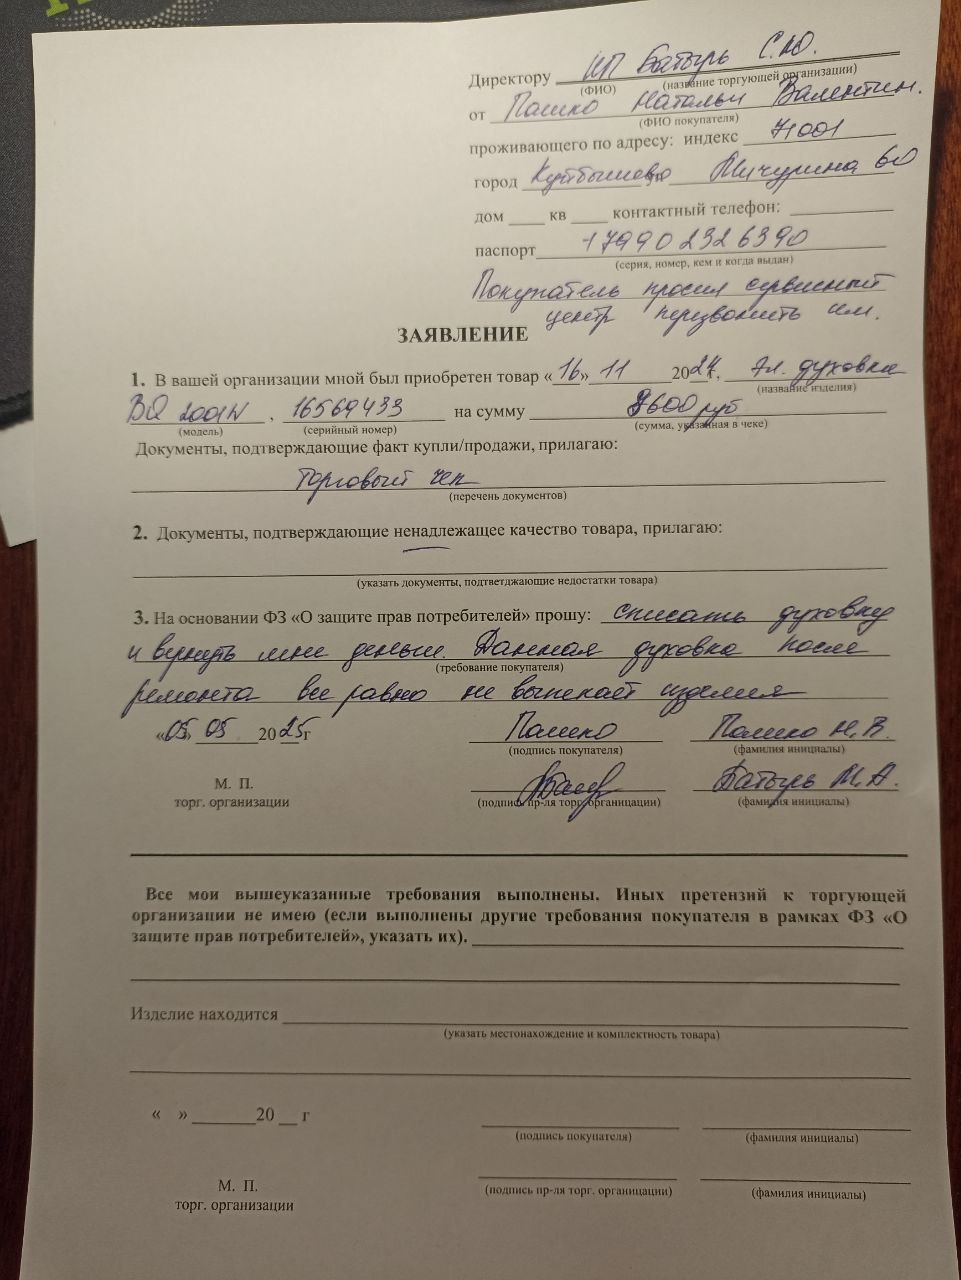 Директору ИП Батырь С.Ю.
(ФИО) (название торгующей организации)
от Пашко Натальи Валентин.
(ФИО покупателя)
проживающего по адресу: индекс 71001
город Куйбышево ул Мичурина 60
дом ____ кв ____ контактный телефон: ____
паспорт +79902326390
(серия, номер, кем и когда выдан)
Покупатель просил сервисный
центр перезвонить им.
ЗАЯВЛЕНИЕ
1. В вашей организации мной был приобретен товар «16» 11 2024г, Эл. духовка
(название изделия)
BQ 2001W, 16569433 на сумму 9600 руб
(модель) (серийный номер) (сумма, указанная в чеке)
Документы, подтверждающие факт купли/продажи, прилагаю:
Торговый чек
(перечень документов)
2. Документы, подтверждающие ненадлежащее качество товара, прилагаю:
(указать документы, подтветджающие недостатки товара)
3. На основании ФЗ «О защите прав потребителей» прошу: списать духовку
и вернуть мне деньги. Данная духовка после
(требование покупателя)
ремонта все равно не выпекает изделия
«05» 05 2025г Пашко Пашко Н.В.
(подпись покупателя) (фамилия инициалы)
М. П. Батырь М.А.
торг. организации (подпись пр-ля торг. органицации) (фамилия инициалы)
Все мои вышеуказанные требования выполнены. Иных претензий к торгующей
организации не имею (если выполнены другие требования покупателя в рамках ФЗ «О
защите прав потребителей», указать их).
Изделие находится
(указать местонахождение и комплектность товара)
« » ______20 __ г
(подпись покупателя) (фамилия инициалы)
М. П.
торг. организации (подпись пр-ля торг. органицации) (фамилия инициалы)